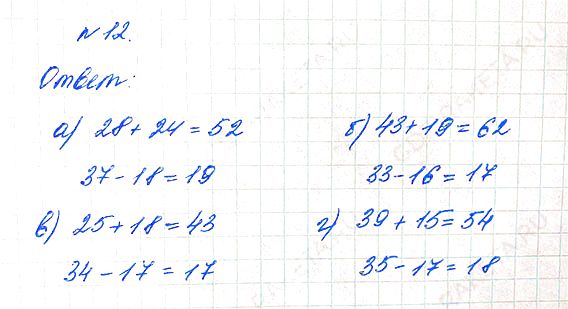 № 12.
Ответ:
а) 28 + 24 = 52
37 - 18 = 19
б) 43 + 19 = 62
33 - 16 = 17
в) 25 + 18 = 43
34 - 17 = 17
г) 39 + 15 = 54
35 - 17 = 18